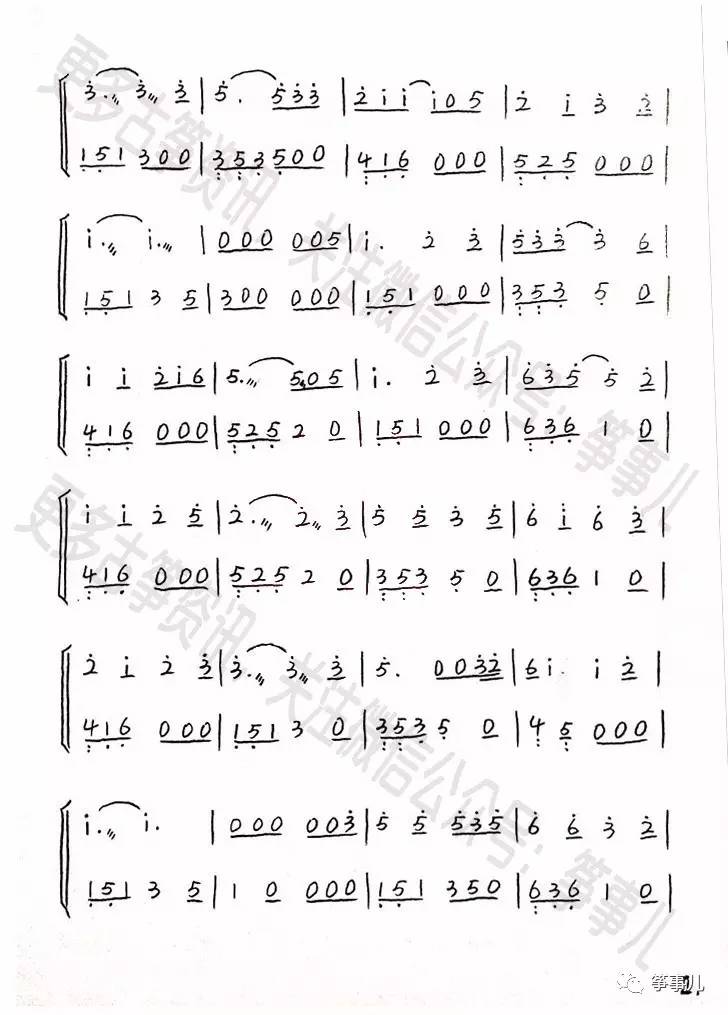 3. 3. 3 | 5. 5 3 3 | 2 1 1 1 0 5 | 2 1 3 2 |
1 5 1 3 0 0 | 3 5 3 5 0 0 | 4 1 6 0 0 0 | 5 2 5 0 0 0 |
1. 1. | 0 0 0 0 0 5 | 1. 2 3 | 5 3 3 3 6 |
1 5 1 3 5 | 3 0 0 0 0 0 | 1 5 1 0 0 0 | 3 5 3 5 0 |
1 1 2 1 6 | 5. 5 0 5 | 1. 2 3 | 6 3 5 5 2 |
4 1 6 0 0 0 | 5 2 5 2 0 | 1 5 1 0 0 0 | 6 3 6 1 0 |
1 1 2 5 | 2. 2. 3 | 5 5 3 5 | 6 1 6 3 |
4 1 6 0 0 0 | 5 2 5 2 0 | 3 5 3 5 0 | 6 3 6 1 0 |
2 1 2 3 | 3. 3. 3 | 5. 0 0 3 2 | 6 1. 1 2 |
4 1 6 0 0 0 | 1 5 1 3 0 | 3 5 3 5 0 | 4 5 0 0 0 |
1. 1. | 0 0 0 0 0 3 | 5 5 5 3 5 | 6 6 3 2 |
1 5 1 3 5 | 1 0 0 0 0 | 1 5 1 3 5 0 | 6 3 6 1 0 |
更多古筝资讯,关注微信公众号:筝事儿
更多古筝资讯,关注微信公众号:筝事儿
2.
筝事儿